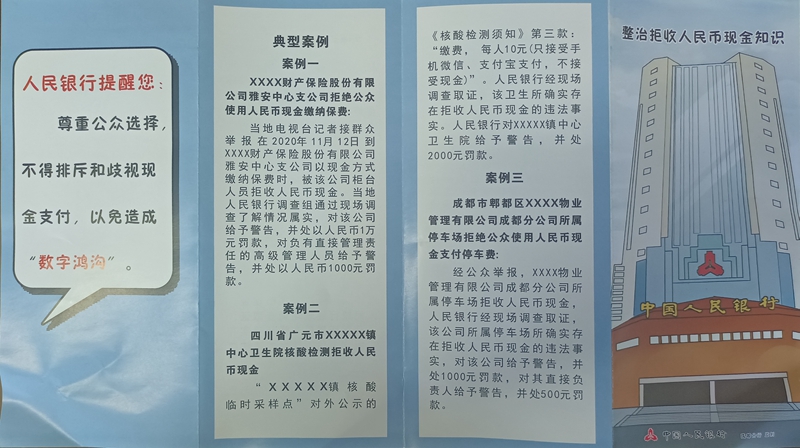 人民银行提醒您：
尊重公众选择，
不得排斥和歧视现
金支付，以免造成
“数字鸿沟”。
典型案例
案例一
XXXX财产保险股份有限
公司雅安中心支公司拒绝公众
使用人民币现金缴纳保费:
当地电视台记者接群众
举报在2020年11月12日到
XXXX财产保险股份有限公司
雅安中心支公司以现金方式
缴纳保费时，被该公司柜台
人员拒收人民币现金。当地
人民银行调查组通过现场调
查了解情况属实，对该公司
给予警告，并处以人民币1万
元罚款，对负有直接管理责
任的高级管理人员给予警
告，并处以人民币1000元罚
款。
案例二
四川省广元市XXXXX镇
中心卫生院核酸检测拒收人民
币现金
“XXXXX镇核酸
临时采样点”对外公示的
《核酸检测须知》第三款：
“缴费，每人10元(只接受手
机微信、支付宝支付，不接
受现金)”。人民银行经现场
调查取证，该卫生所确实存
在拒收人民币现金的违法事
实。人民银行对XXXXX镇中心
卫生院给予警告，并处
2000元罚款。
案例三
成都市郫都区XXXX物业
管理有限公司成都分公司所属
停车场拒绝公众使用人民币现
金支付停车费:
经公众举报，XXXX物业
管理有限公司成都分公司所
属停车场拒收人民币现金，
人民银行经现场调查取证，
该公司所属停车场所确实存
在拒收人民币现金的违法事
实，对该公司给予警告，并
处1000元罚款，对其直接负
责人给予警告，并处500元罚
款。
整治拒收人民币现金知识
中国人民银行
中国人民银行